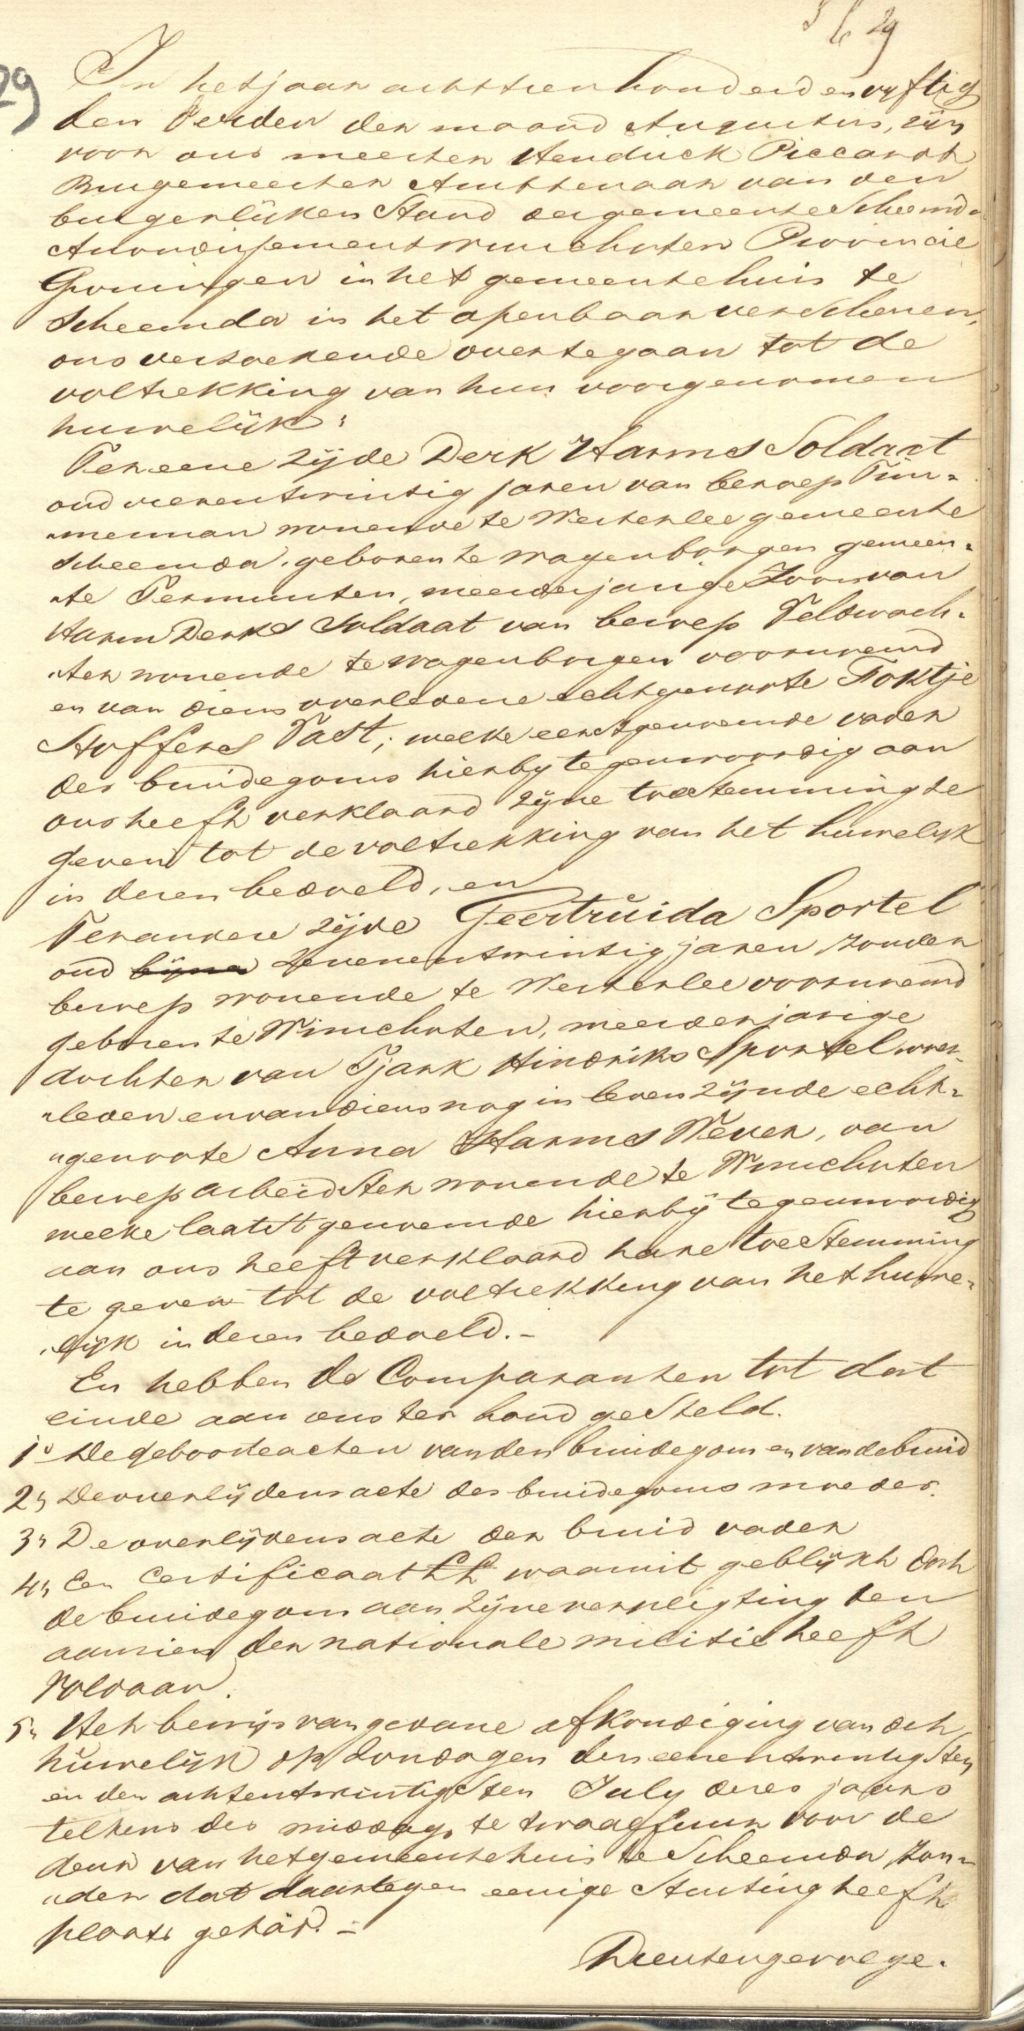 29
29
In het jaar achttien honderd en vyftig
den derden der maand Augustus, zijn
voor ons meester Hendrick Piccardt
Burgemeester Ambtenaar van den
burgerlijken Stand der gemeente Scheemda
Arrondissement Winschoten Provincie
Groningen in het gemeentehuis te
Scheemda in het openbaar verschenen,
ons verzoekende overtegaan tot de
voltrekking van hun voorgenomen
huwelijk:
Ter eene zijde Derk Harms Soldaat
oud vierentwintig jaren van beroep Tim-
merman wonende te Westerlee gemeente
Scheemda, geboren te Wagenborgen gemeen-
te Termunten, meerderjarige Zoon van
Harm Derks Soldaat van beroep Veldwach-
ter wonende te Wagenborgen voornoemd
en van diens overledene echtgenoote Foktje
Stoffers Vast; welke eerstgenoemde vader
des bruidegoms hierby tegenwoordig aan
ons heeft verklaard zijne toestemming te
geven tot de voltrekking van het huwelijk
in dezen bedoeld, en
Ter andere zijde Geertruida Sportel
oud bijna zevenentwintig jaren, zonder
beroep wonende te Westerlee voornoemd
geboren te Winschoten, meerderjarige
dochter van Tjark Hindriks Sportel over-
leden en van diens nog in leven zijnde echt-
genoote Anna Harms Wever, van
beroep arbeidster wonende te Winschoten
welke laatstgenoemde hierbij tegenwoordig
aan ons heeft verklaard hare toestemming
te geven tot de voltrekking van het huwe-
lijk in dezen bedoeld.-
En hebben de Comparanten tot dat
einde aan ons ter hand gesteld.
1o De geboorteacten van den bruidegom en van de bruid
2o De overlijdens acte des bruidegoms moeder.
3o De overlijdens acte der bruid vader
4o Een Certificaat waaruit geblijkt dat
de bruidegom aan zijne verpligting ten
aanzien der nationale militie heeft
voldaan.
5o Het bewijs van gedane afkondiging van dit
huwelijk op Zondagen den eenentwintigsten
en den achtentwintigsten July dezes jaars
telkens des middags te twaalf uur voor de
deur van het gemeentehuis te Scheemda, zon-
der dat daartegen eenige stuiting heeft
plaats gehad.-
Dientengevolge.